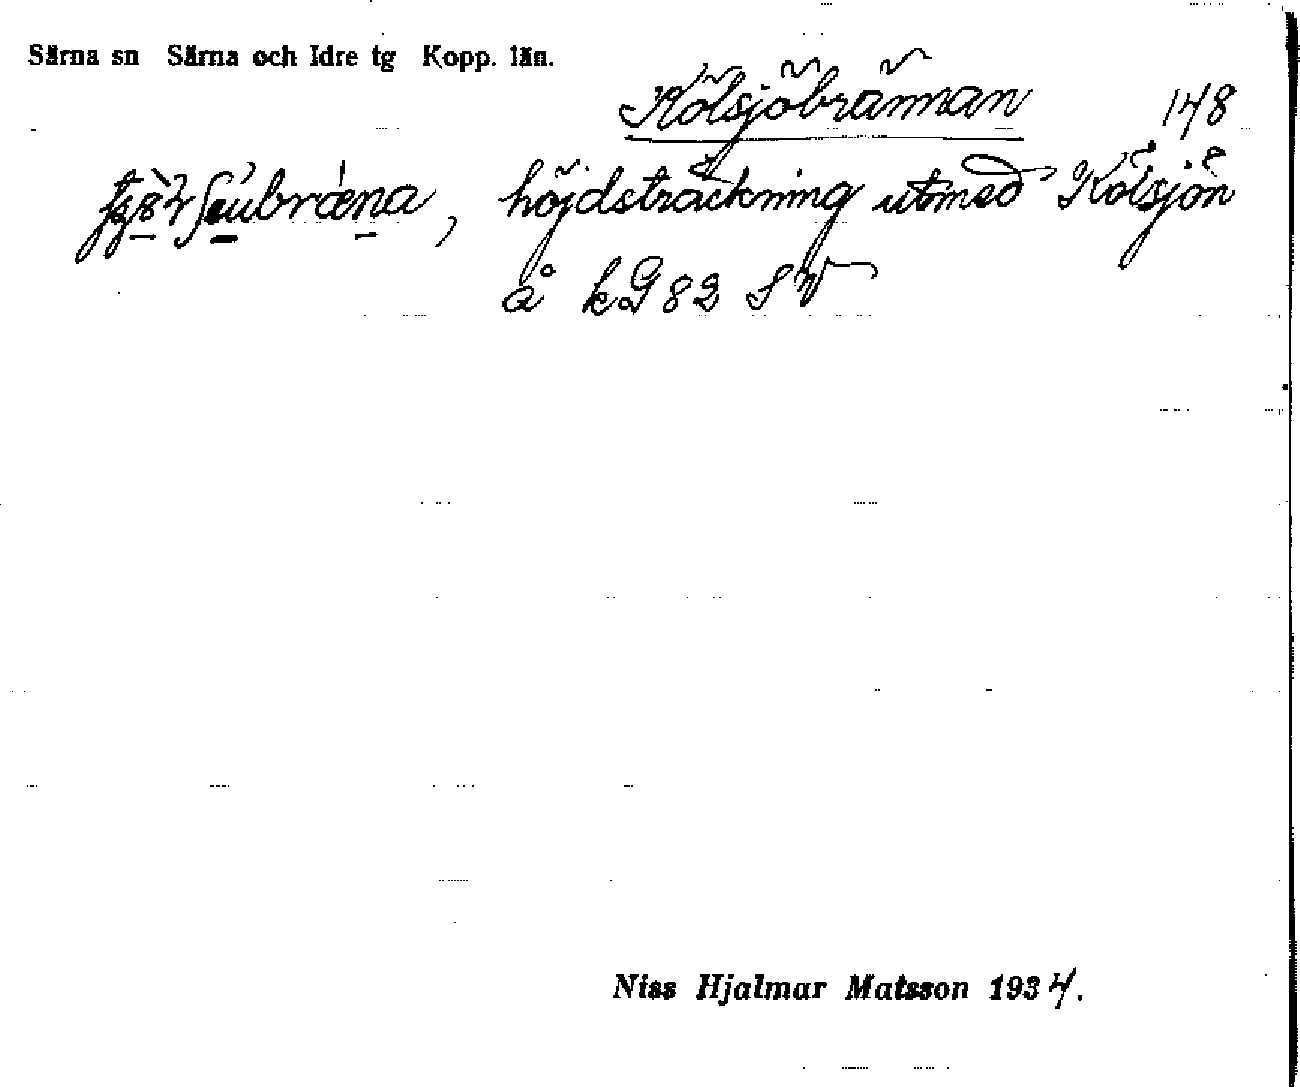 Särna sn Särna och Idre tg Kopp. län.
Kölsjöbrännan 148
höjdsträckning utmed Kölsjön
å kG 82 SV
Niss Hjalmar Matsson 1934.